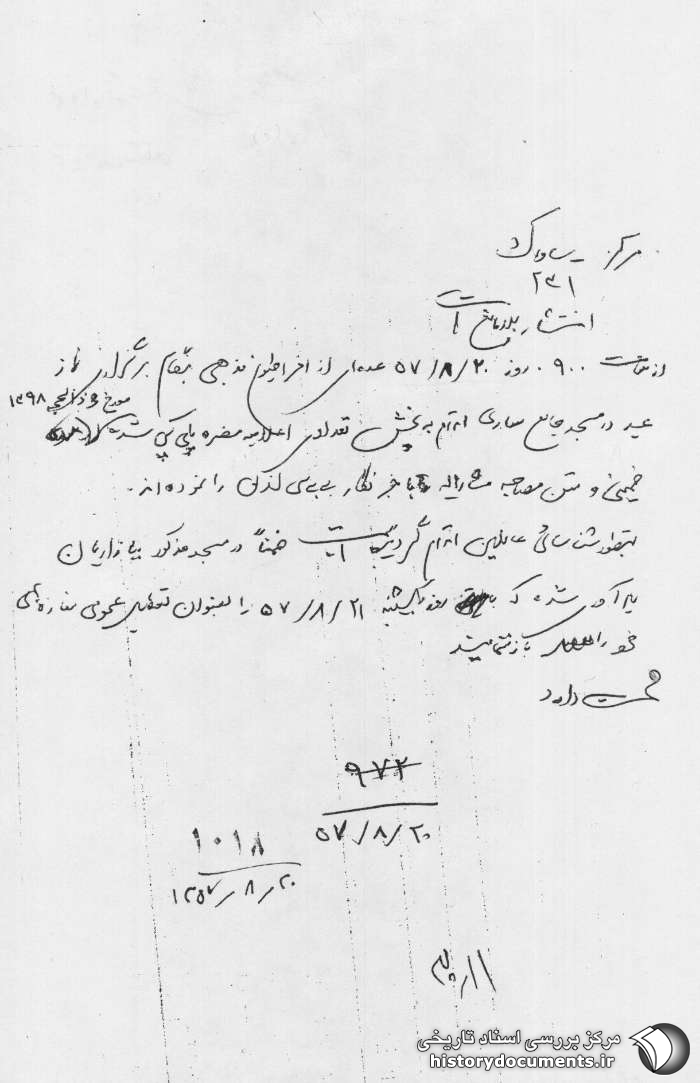 مرکز ساواک
۲۳۱
انتشار اعلامیه
از ساعت ۰۹۰۰ روز ۵۷/۸/۲۰ عده‌ای از افراطیون مذهبی بهنگام برگزاری نماز
عید در مسجد جامع ساری اقدام به پخش تعدادی اعلامیه مضره پلی کپی شده
مورخ ذی الحجه ۱۳۹۸
خمینی و متن مصاحبه مشارالیه با خبرنگار بی بی سی لندن را نموده‌اند.
بمنظور شناسائی عاملین اقدام گردیده است ضمناً در مسجد مذکور به بازاریان
یادآوری شده که روز یکشنبه ۵۷/۸/۲۱ را بعنوان تعطیل عمومی مغازه‌های
خود را باز ننمایند
۹۷۲
۵۷/۸/۲۰
۱۰۱۸
۱۳۵۷/۸/۲۰
مرکز بررسی اسناد تاریخی
historydocuments.ir